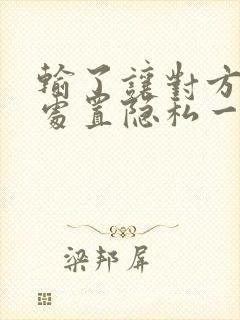 輸了讓對方
處置隐私一
梁邦屏